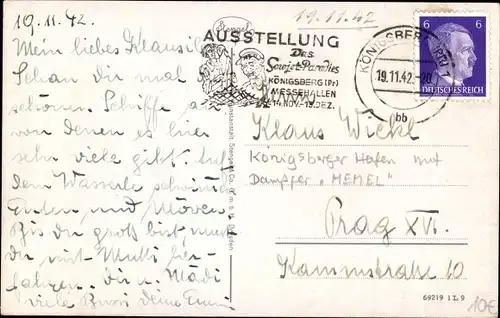 19.11.42.
19.11.42
Mein liebes Klausi
Schau dir mal
schönen Schiffe an
von denen es hier
sehr viele gibt. Auf
dem Wasserle schwimm
Enten und Möven
Bis du groß bist
du mit Mutti her-
fahren.
viele Bussi Deine
AUSSTELLUNG
Das
Sowjet-Paradies
KÖNIGSBERG (Pr)
MESSEHALLEN
14. NOV.-13. DEZ.
KÖNIGSBERG (PR) 1
19.11.42.-20
bb
6 6
DEUTSCHES REICH
Klaus Wickl
Königsberger Hafen mit
Dampfer „MEMEL“
Prag XV.
Kammstraße 10
Kunstanstalt Stengel & Co. G.m.b.H. Dresden
69219 I L 9
10€